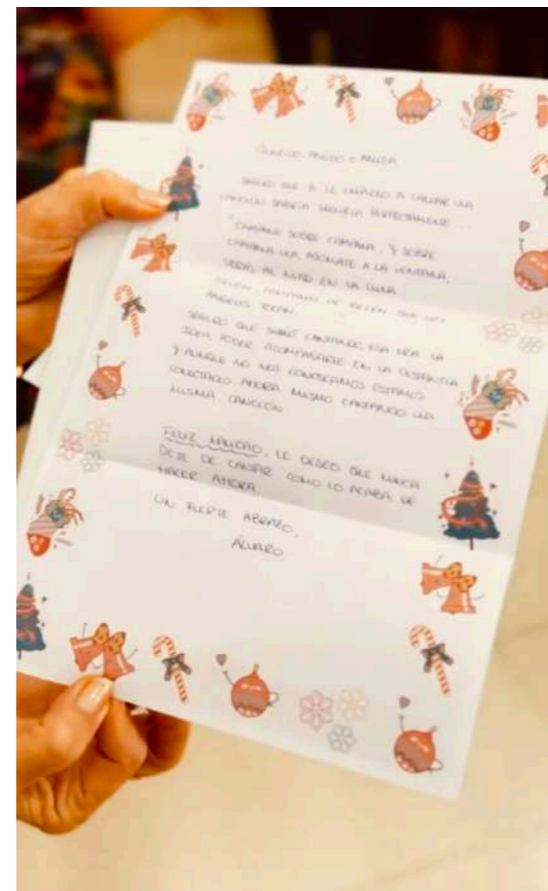 QUERIDO AMIGO O AMIGA
SEGURO QUE SI LE EMPIEZO A CANTAR UNA
CANCIÓN SABRÍA SEGUIRLA PERFECTAMENTE...
"CAMPANA SOBRE CAMPANA, Y SOBRE
CAMPANA UNA, ASÓMATE A LA VENTANA,
VERÁS AL NIÑO EN LA CUNA
BELÉN, CAMPANAS DE BELÉN QUE LOS
ÁNGELES TOCAN
SEGURO QUE SIGUE CANTANDO ESA ERA LA
IDEA PODER ACOMPAÑARTE EN LA DISTANCIA
Y AUNQUE NO NOS CONOZCAMOS ESTAMOS
CONECTADO AHORA MISMO CANTANDO UNA
MISMA CANCIÓN
FELIZ NAVIDAD, LE DESEO QUE NUNCA
DEJE DE CANTAR COMO LO ACABA DE
HACER AHORA.
UN FUERTE ABRAZO,
ÁLVARO